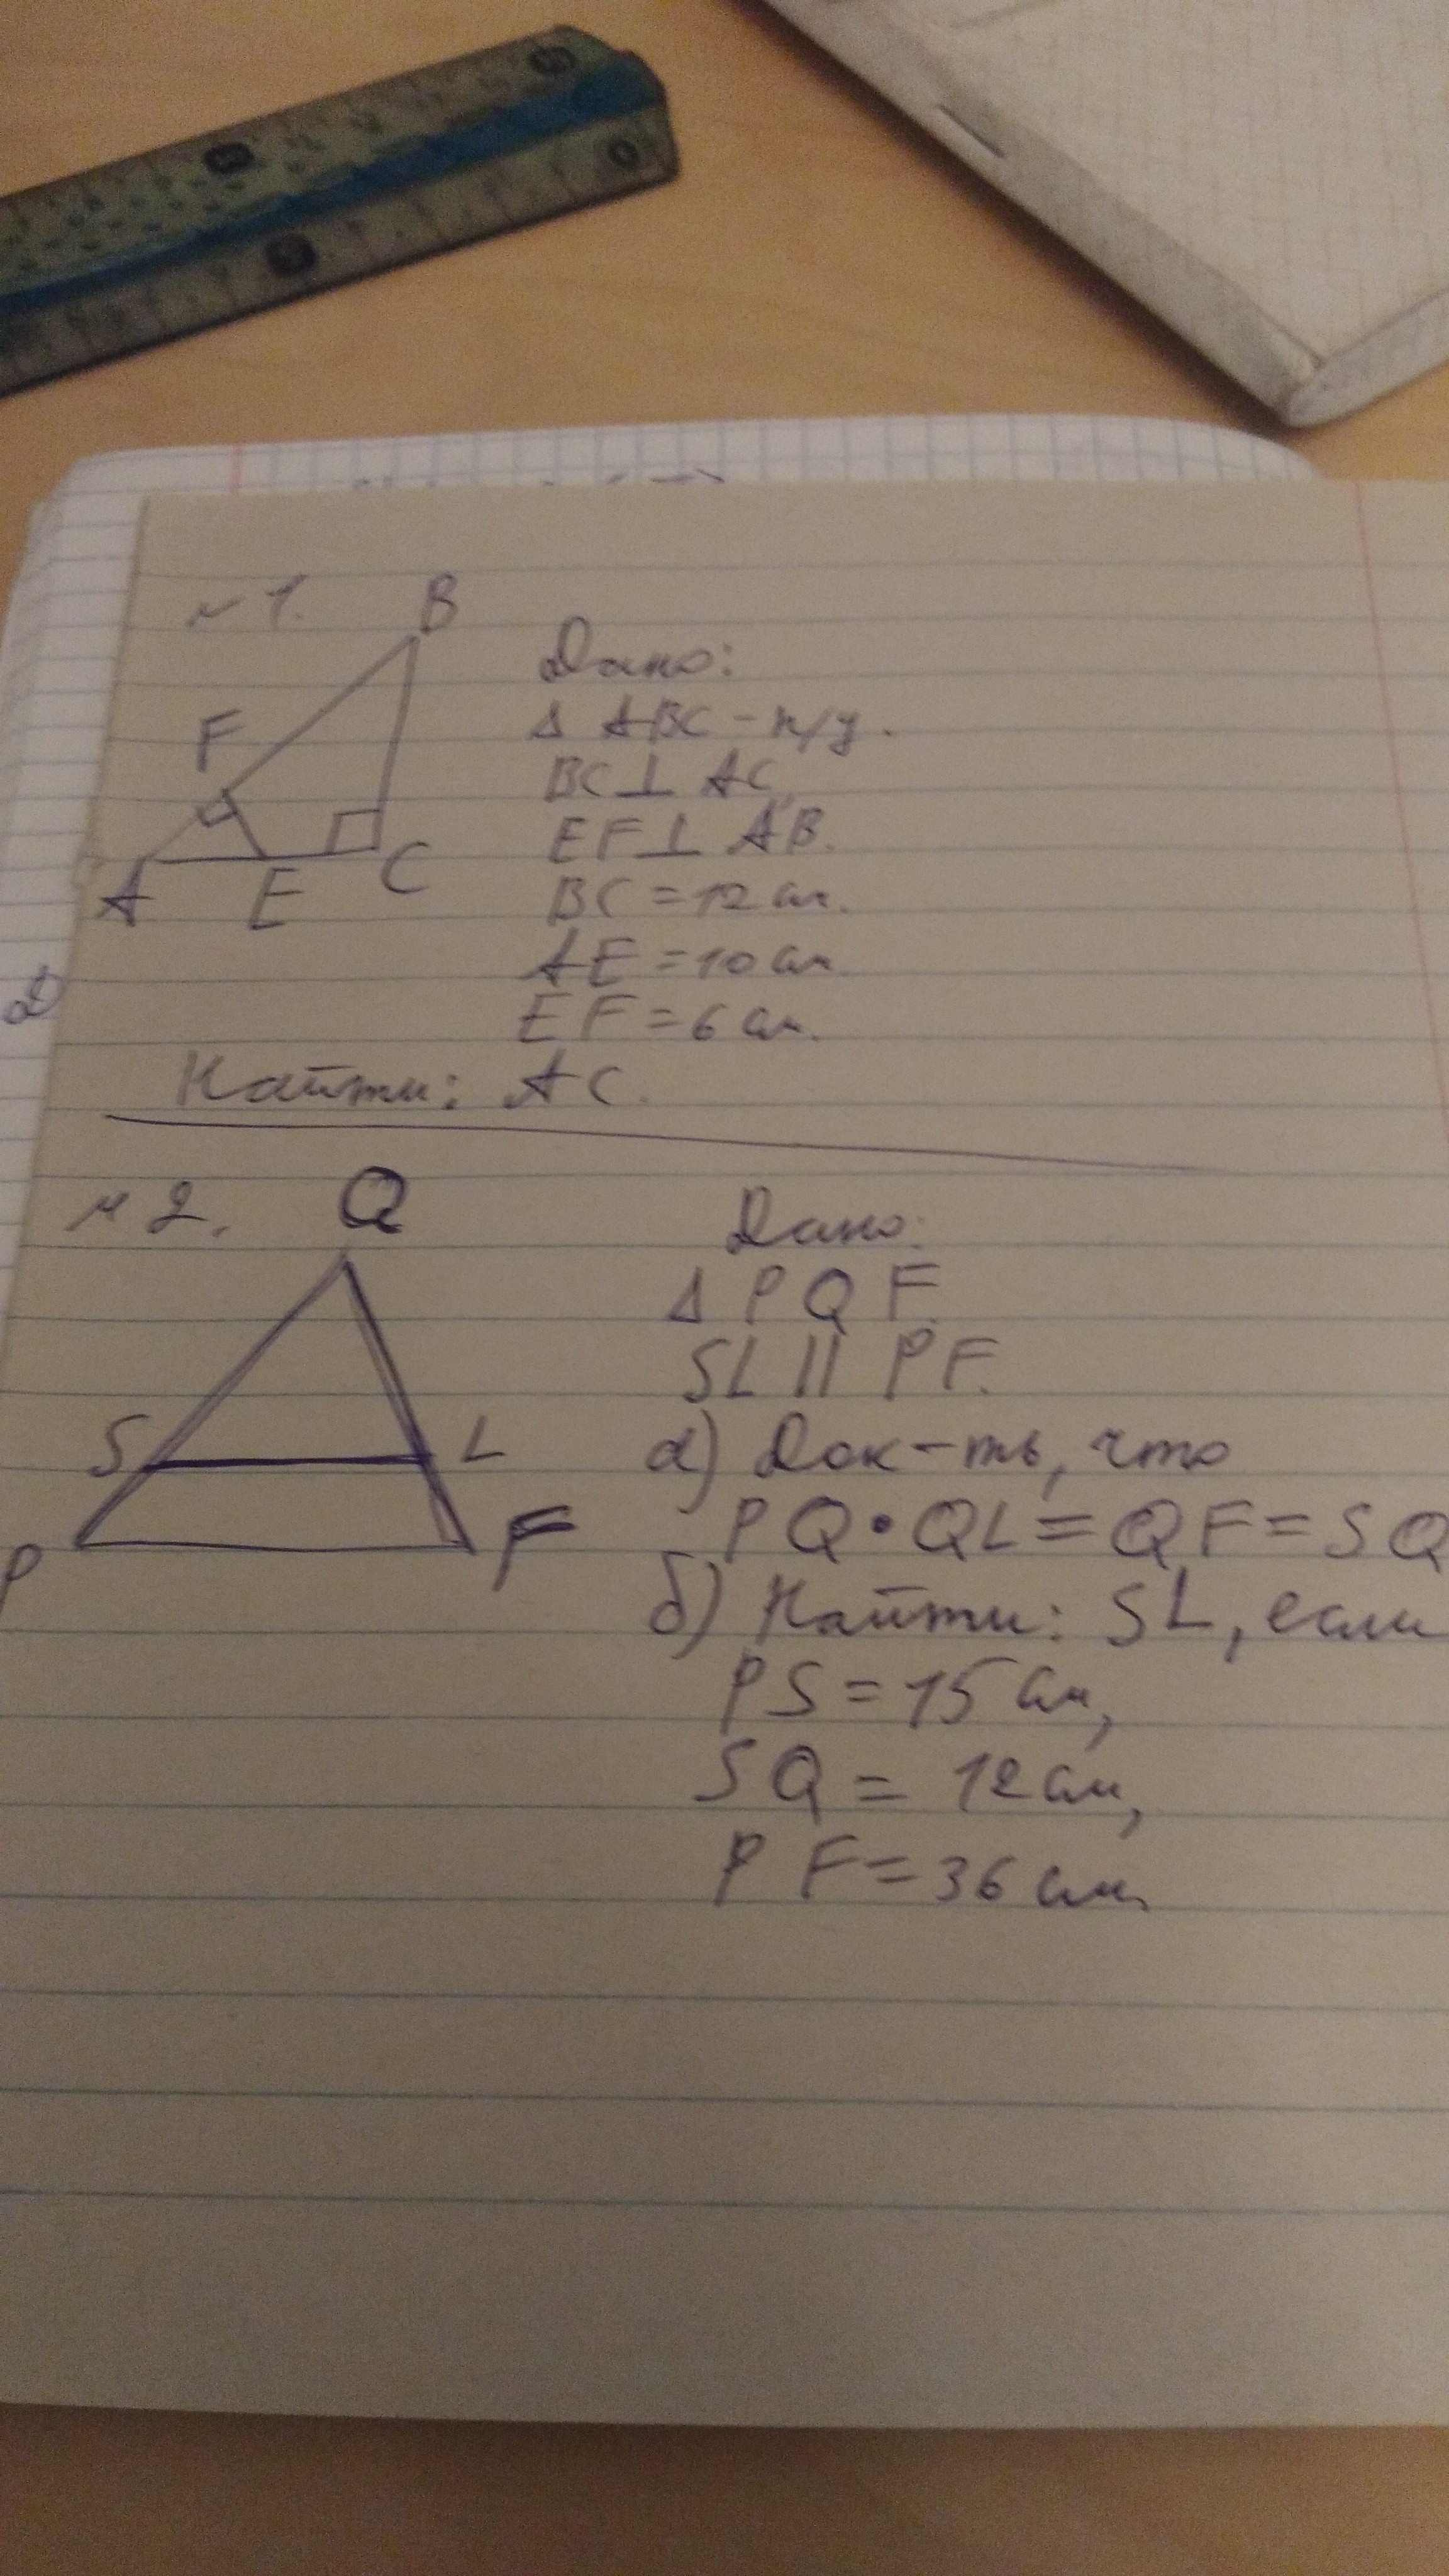 №1.
B
F
A
E
C
Дано:
Δ ABC - п/у.
BC⊥ AC,
EF⊥ AB.
BC = 12 см.
AE = 10 см
EF = 6 см.
Найти: AC.
№2.
Q
S
L
P
F
Дано:
Δ PQF.
SL || PF.
а) Док-ть, что
PQ • QL = QF = SQ
б) Найти: SL, если
PS = 15 см,
SQ = 12 см,
PF = 36 см.